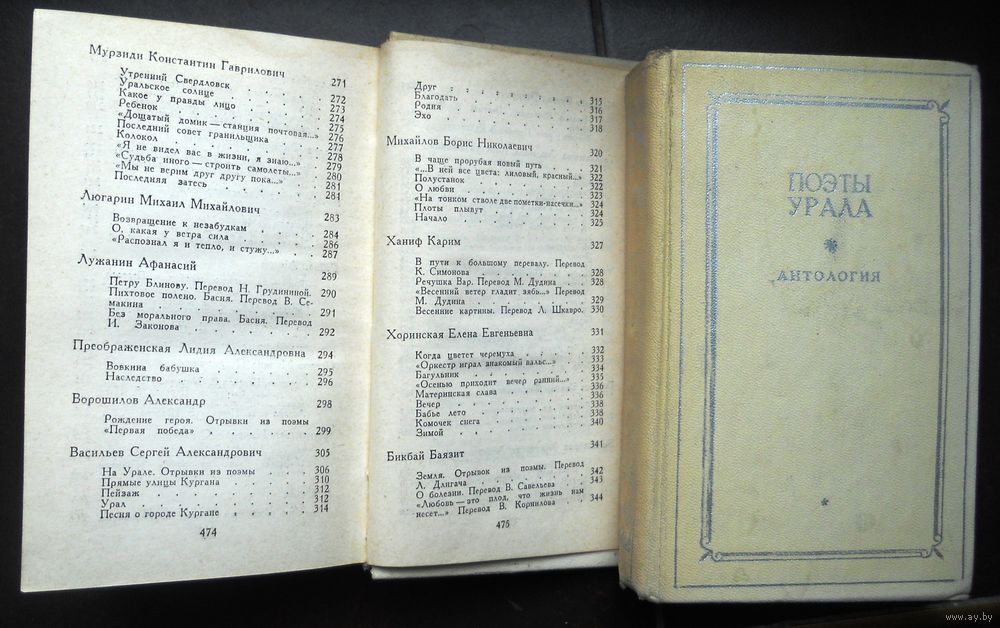 Мурзиди Константин Гаврилович 271
Утренний Свердловск 272
Уральское солнце 273
Какое у правды лицо 274
Ребенок 275
«Дощатый домик — станция почтовая...» 276
Последний совет гранильщика 277
Колокол 278
«Я не видел вас в жизни, я знаю...» 279
«Судьба иного — строить самолеты...» 280
«Мы не верим друг другу пока...» 281
Последняя затесь 281
Люгарин Михаил Михайлович 283
Возвращение к незабудкам 284
О, какая у ветра сила 286
«Распознал я и тепло, и стужу...» 287
Лужанин Афанасий 289
Петру Блинову. Перевод Н. Грудининой. 290
Пихтовое полено. Басня. Перевод В. Се-
макина 291
Без морального права. Басня. Перевод
И. Законова 292
Преображенская Лидия Александровна 294
Вовкина бабушка 295
Наследство 296
Ворошилов Александр 298
Рождение героя. Отрывки из поэмы
«Первая победа» 299
Васильев Сергей Александрович 305
На Урале. Отрывки из поэмы 306
Прямые улицы Кургана 310
Пейзаж 312
Урал 312
Песня о городе Кургане 314
474
Друг 315
Благодать 316
Родня 317
Эхо 318
Михайлов Борис Николаевич 320
В чаще прорубая новый путь 321
«...В ней все цвета: лиловый, красный...» 322
Полустанок 322
О любви 323
«На тонком стволе две пометки-насечки...» 324
Плоты плывут 324
Начало 325
Ханиф Карим 327
В пути к большому перевалу. Перевод
К. Симонова 328
Речушка Вар. Перевод М. Дудина 328
«Весенний ветер гладит зябь...» Перевод
М. Дудина 329
Весенние картины. Перевод Л. Шкавро. 330
Хоринская Елена Евгеньевна 331
Когда цветет черемуха 332
«Оркестр играл знакомый вальс...» 333
Багульник 334
«Осенью приходит вечер ранний...» 335
Материнская слава 336
Вечер 336
Бабье лето 338
Комочек снега 338
Зимой 340
Бикбай Баязит 341
Земля. Отрывок из поэмы. Перевод
Л. Длигача 342
О болезни. Перевод В. Савельева 343
«Любовь — это плод, что жизнь нам
несет...» Перевод В. Корнилова 344
475
ПОЭТЫ
УРАЛА
АНТОЛОГИЯ
www.ay.by